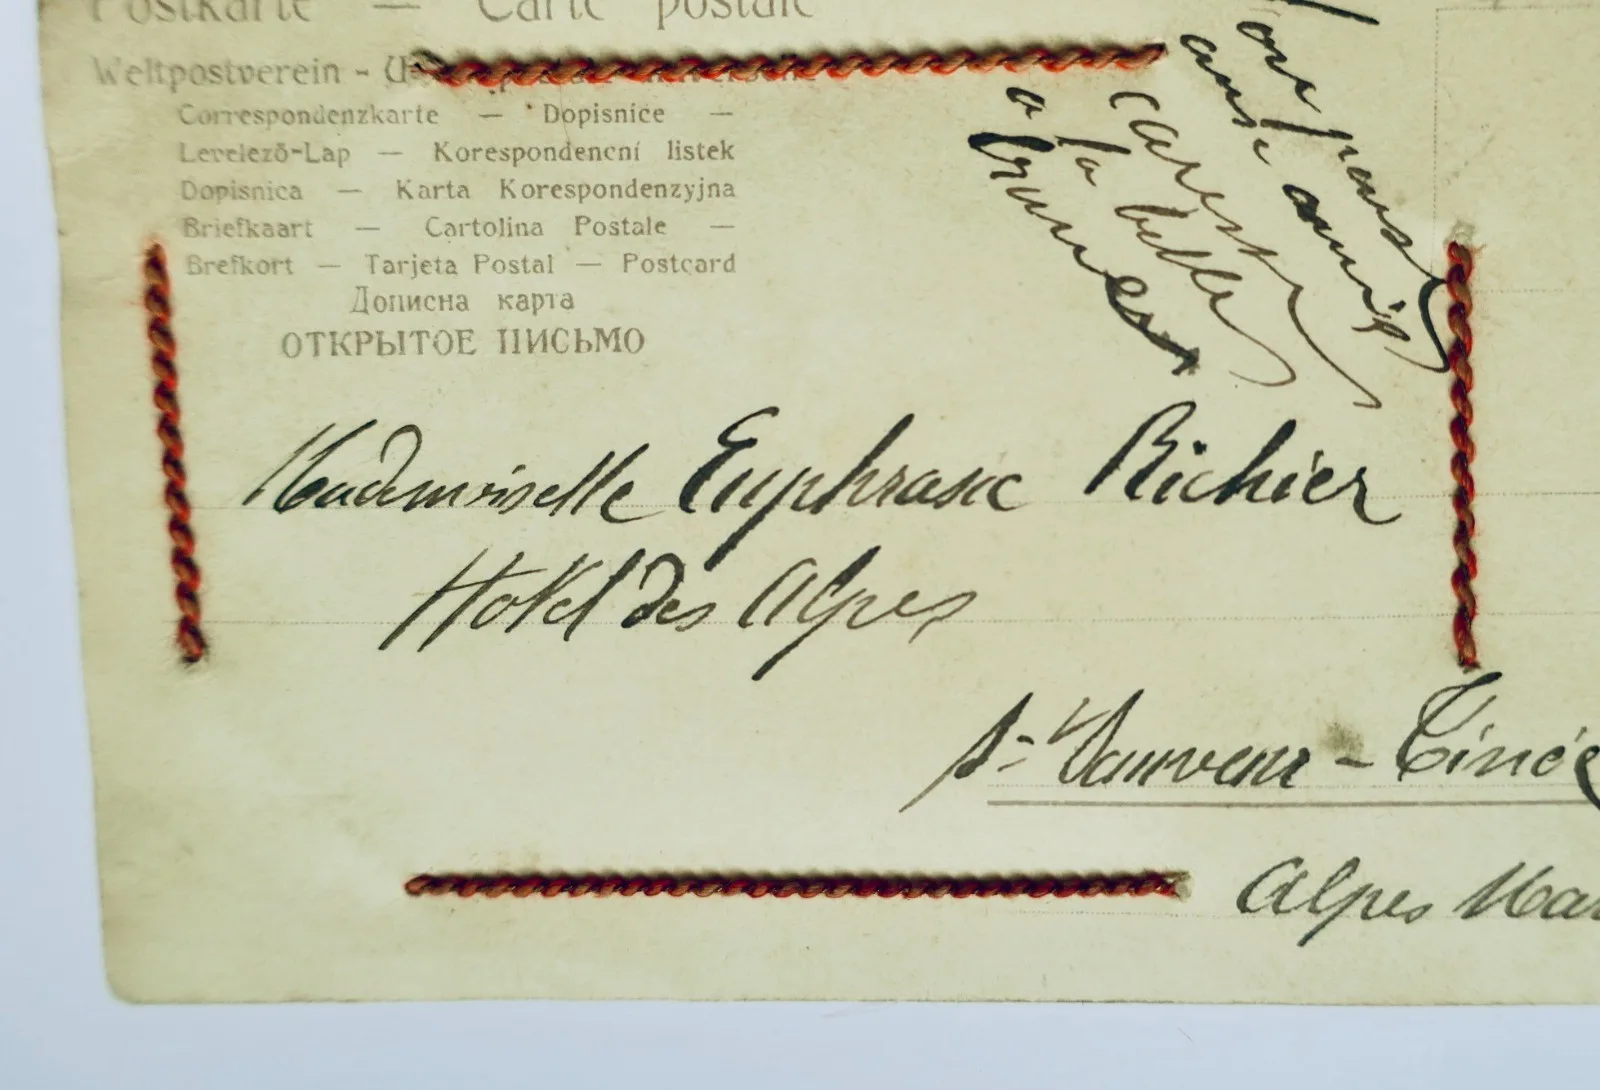 Postkarte — Carte postale
Weltpostverein - U
Correspondenzkarte — Dopisnice —
Levelező-Lap — Korespondencní listek
Dopisnica — Karta Korespondenzyjna
Briefkaart — Cartolina Postale —
Brefkort — Tarjeta Postal — Postcard
Дописна карта
ОТКРЫТОЕ ПИСЬМО
caresse
a la belle
Mademoiselle Euphrasie Richier
Hotel des Alpes
St Sauveur - Tinée
Alpes Mar